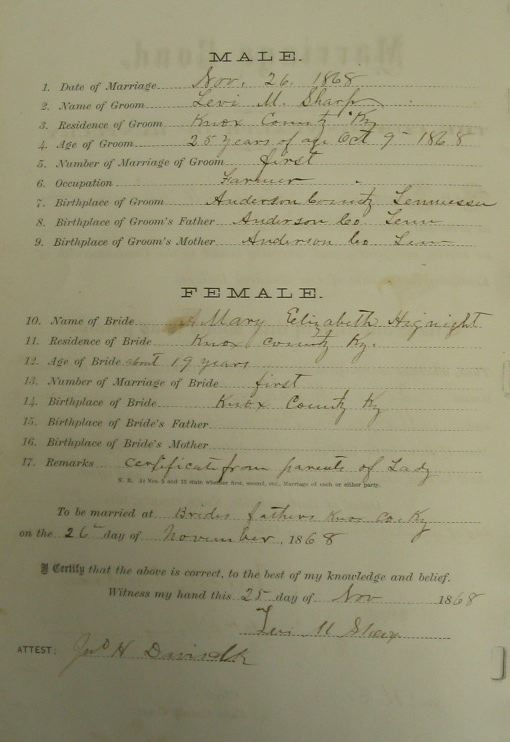 MALE.
1. Date of Marriage Nov. 26. 1868
2. Name of Groom Levi M. Sharp
3. Residence of Groom Knox County Ky
4. Age of Groom 25 years of age Oct 9th 1868
5. Number of Marriage of Groom first
6. Occupation Farmer
7. Birthplace of Groom Anderson County Tennessee
8. Birthplace of Groom's Father Anderson Co Tenn
9. Birthplace of Groom's Mother Anderson Co Tenn
FEMALE.
10. Name of Bride Mary Elizabeth Hignight
11. Residence of Bride Knox County Ky.
12. Age of Bride about 19 years
13. Number of Marriage of Bride first
14. Birthplace of Bride Knox County Ky
15. Birthplace of Bride's Father
16. Birthplace of Bride's Mother
17. Remarks Certificate from parents of Lady
N. B. At Nos. 5 and 13 state whether first, second, etc., Marriage of each or either party.
To be married at Brides fathers Knox Co Ky
on the 26th day of November, 1868
I Certify that the above is correct, to the best of my knowledge and belief.
Witness my hand this 25 day of Nov 1868
Levi M Sharp
ATTEST: Jno H Davis Clk